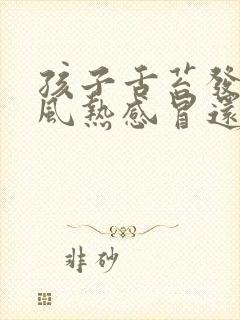 孩子舌苔發
風熱感冒還
非砂